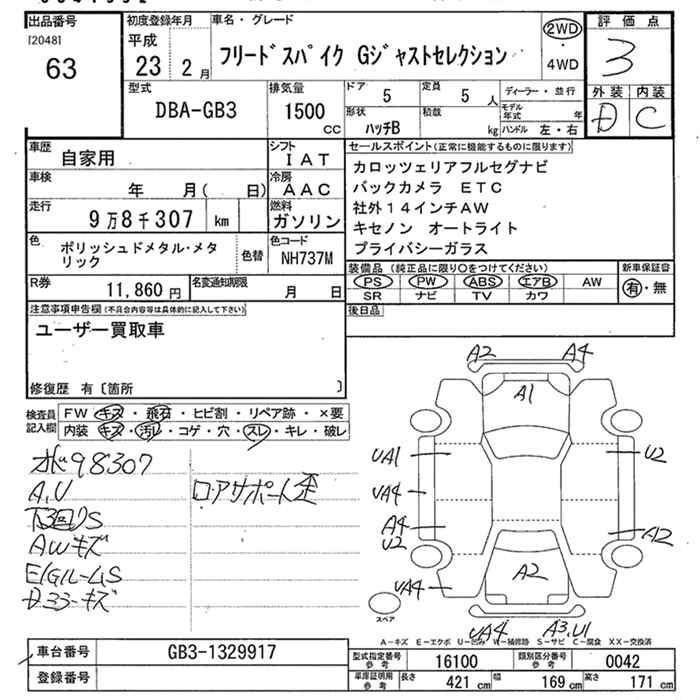 出品番号
[2048]
63
初度登録年月
平成
23 2月
車名・グレード
フリードスパイク Gジャストセレクション
2WD
・
4WD
評価点
3
外装 内装
D C
型式
DBA-GB3
排気量
1500
CC
ドア 5
定員 5 人
形状 ハッチB
積載 kg
ディーラー・並行
モデル年式 年
ハンドル 左・右
車歴
自家用
シフト
IAT
車検
年 月( 日)
冷房
AAC
走行
9万8千307 km
燃料
ガソリン
色
ポリッシュドメタル・メタ
リック
色替
色コード
NH737M
R券
11,860 円
名変通知期限
月 日
セールスポイント(正常に機能するものに限ります)
カロッツェリアフルセグナビ
バックカメラ ETC
社外14インチAW
キセノン オートライト
プライバシーガラス
装備品(純正品に限り○をつけてください)
PS PW ABS エアB AW
SR ナビ TV カワ
新車保証書
有・無
後日品
注意事項申告欄(不具合内容等は具体的に記入して下さい)
ユーザー買取車
修復歴 有〔箇所 〕
検査員
記入欄
FW キズ・飛石・ヒビ割・リペア跡・×要
内装 キズ・汚レ・コゲ・穴・スレ・キレ・破レ
98307
A,U
下回りS
AWキズ
E/GルームS
Dミラーキズ
ロアサポート歪
A2 A4
A1
UA1 U2
UA4
A4
U2
A2
A2
UA4
UA4 A3,U1
スペア
A-キズ E-エクボ U-凹み W-補修跡 S-サビ C-腐食 XX-交換済
車台番号
GB3-1329917
登録番号
型式指定番号
参考
16100
類別区分番号
参考
0042
車庫証明用
参考
長さ 421 cm
幅 169 cm
高さ 171 cm